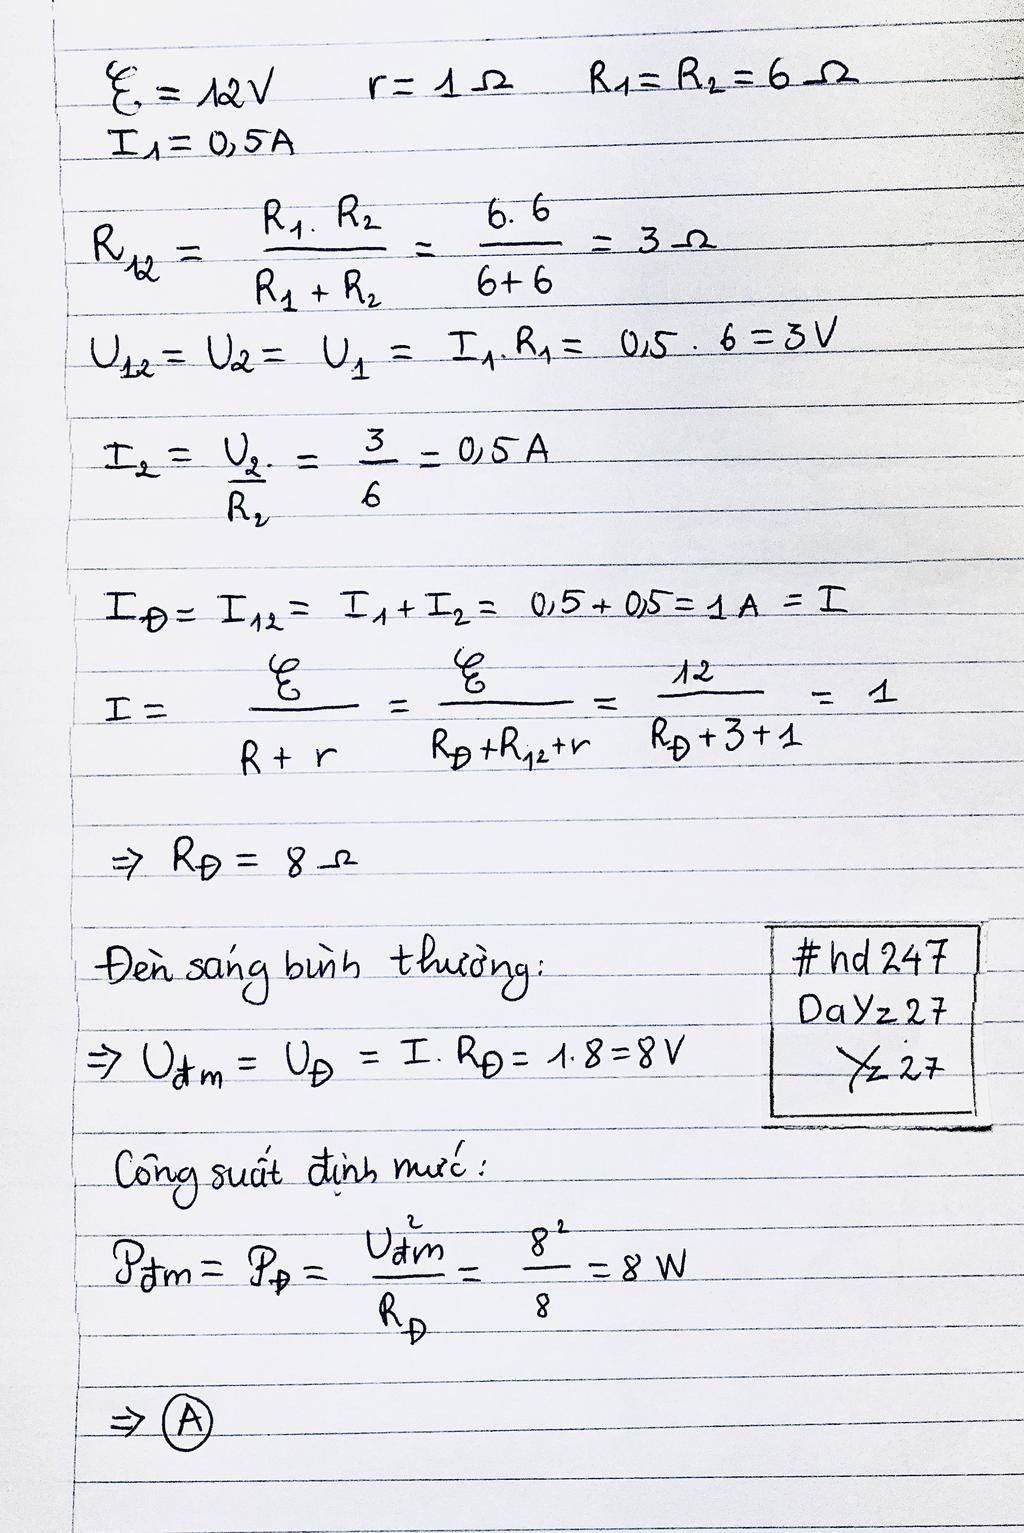 ℰ = 12V r = 1 Ω R₁ = R₂ = 6 Ω
I₁ = 0,5A
R₁₂ = (R₁ . R₂)/(R₁ + R₂) = (6. 6)/(6+6) = 3 Ω
U₁₂ = U₂ = U₁ = I₁ . R₁ = 0,5 . 6 = 3V
I₂ = U₂/R₂ = 3/6 = 0,5 A
I_Đ = I₁₂ = I₁ + I₂ = 0,5 + 0,5 = 1 A = I
I = ℰ/(R + r) = ℰ/(R_Đ + R₁₂ + r) = 12/(R_Đ + 3 + 1) = 1
⇒ R_Đ = 8 Ω
Đèn sáng bình thường:
⇒ U_đm = U_Đ = I. R_Đ = 1.8 = 8V
#hd247
DaYz27
Yz 27
Công suất định mức:
P_đm = P_Đ = U_đm²/R_Đ = 8²/8 = 8 W
⇒ A